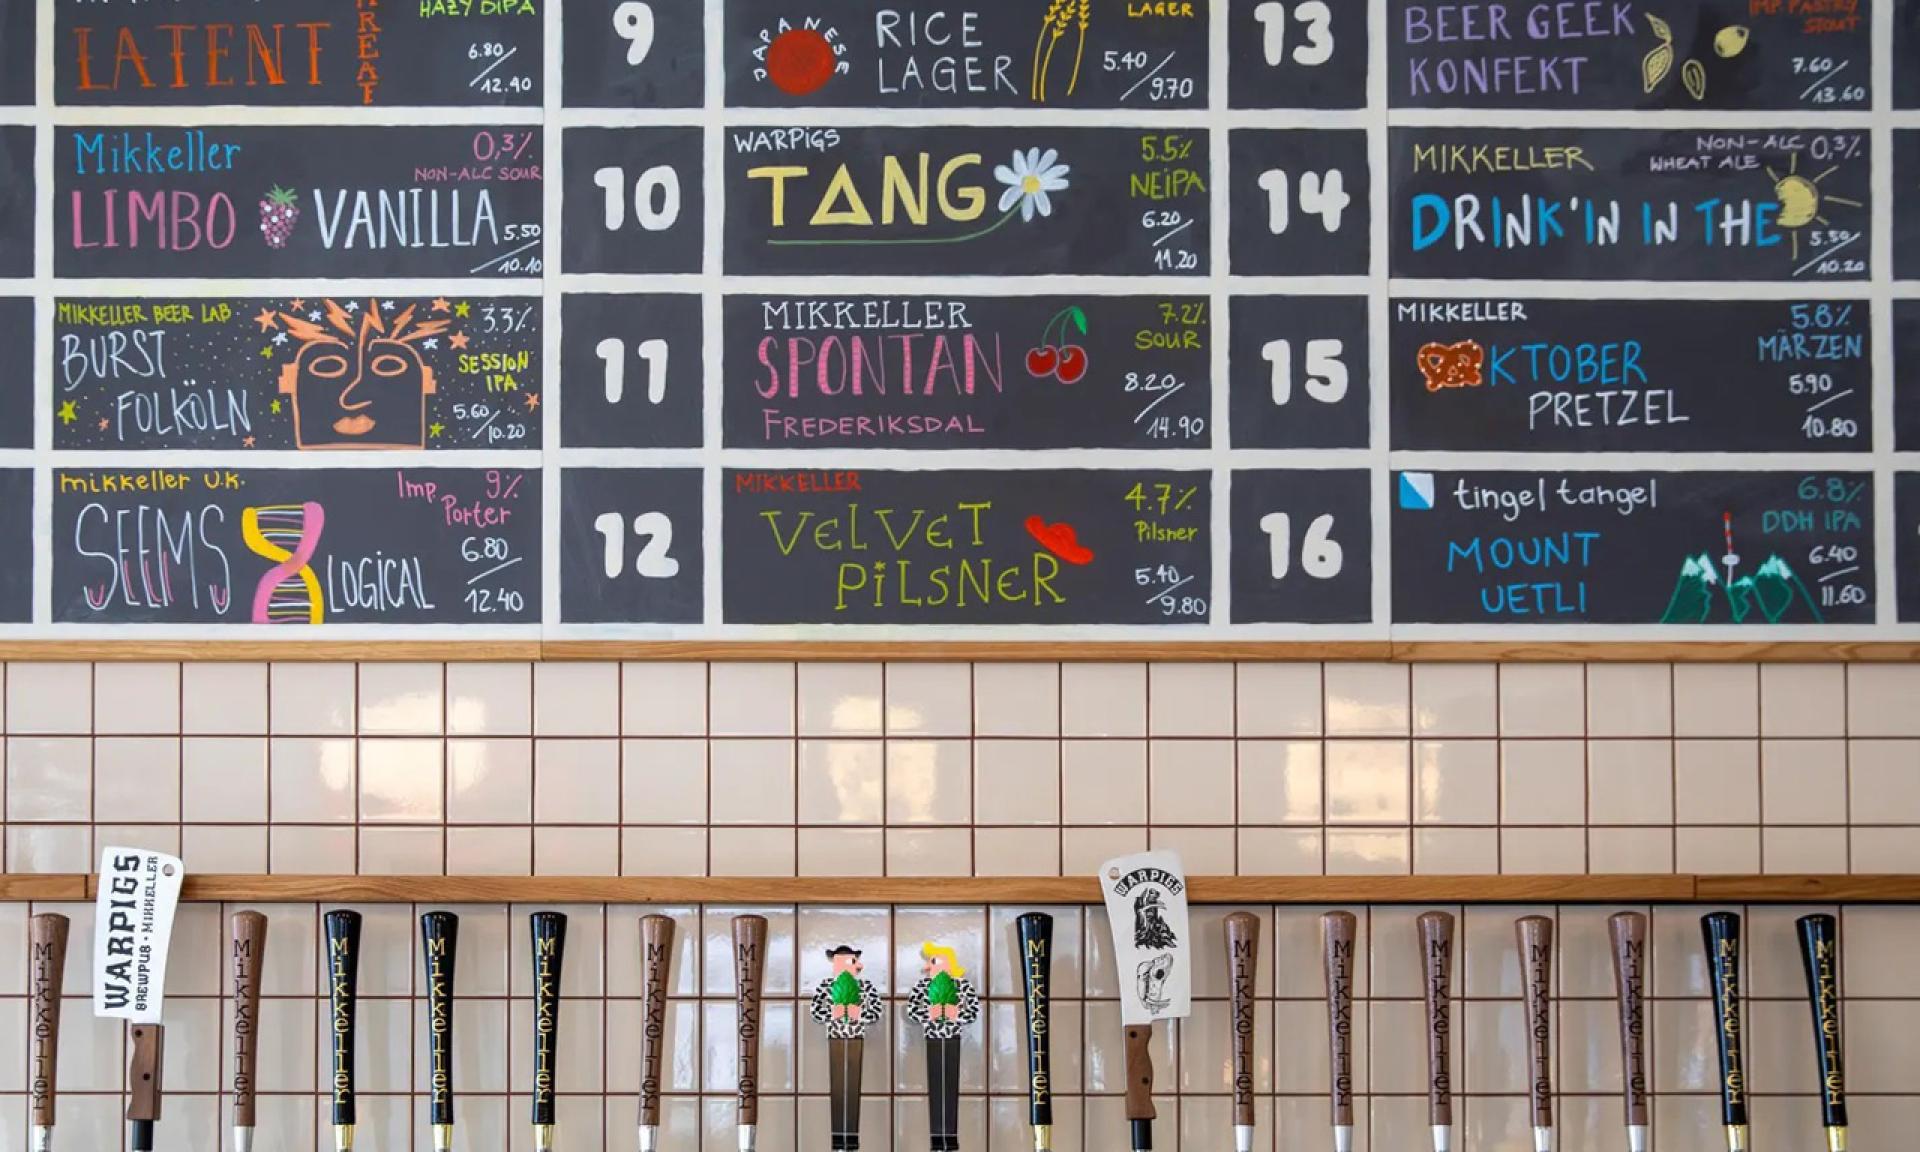 HAZY DIPA
LATENT
THREAT
6.80/12.40
9
JAPANESE
RICE
LAGER
LAGER
5.40/9.70
13
BEER GEEK
KONFEKT
IMP. PASTRY
STOUT
7.60/13.60
Mikkeller
0,3%
NON-ALC SOUR
LIMBO VANILLA
5.50/10.10
10
WARPIGS
TANG
5.5%
NEiPA
6.20/11.20
14
MIKKELLER
NON-ALC 0,3%
WHEAT ALE
DRINK'IN IN THE
5.50/10.20
MIKKELLER BEER LAB
BURST
FOLKÖLN
3.3%
SESSION
IPA
5.60/10.20
11
MIKKELLER
SPONTAN
FREDERIKSDAL
7.2%
SOUR
8.20/14.90
15
MIKKELLER
KTOBER
PRETZEL
5.8%
MÄRZEN
5.90/10.80
mikkeller U.K.
SEEMS LOGICAL
Imp. Porter
9%
6.80/12.40
12
MIKKELLER
VELVET
PiLSNER
4.7%
Pilsner
5.40/9.80
16
tingel tangel
MOUNT
UETLI
6.8%
DDH IPA
6.40/11.60
Mikkeller
WARPIGS
BREWPUB · MIKKELLER
Mikkeller
Mikkeller
Mikkeller
Mikkeller
Mikkeller
Mikkeller
Mikkeller
WARPIGS
Mikkeller
Mikkeller
Mikkeller
Mikkeller
Mikkeller
Mikkeller
Mikkeller